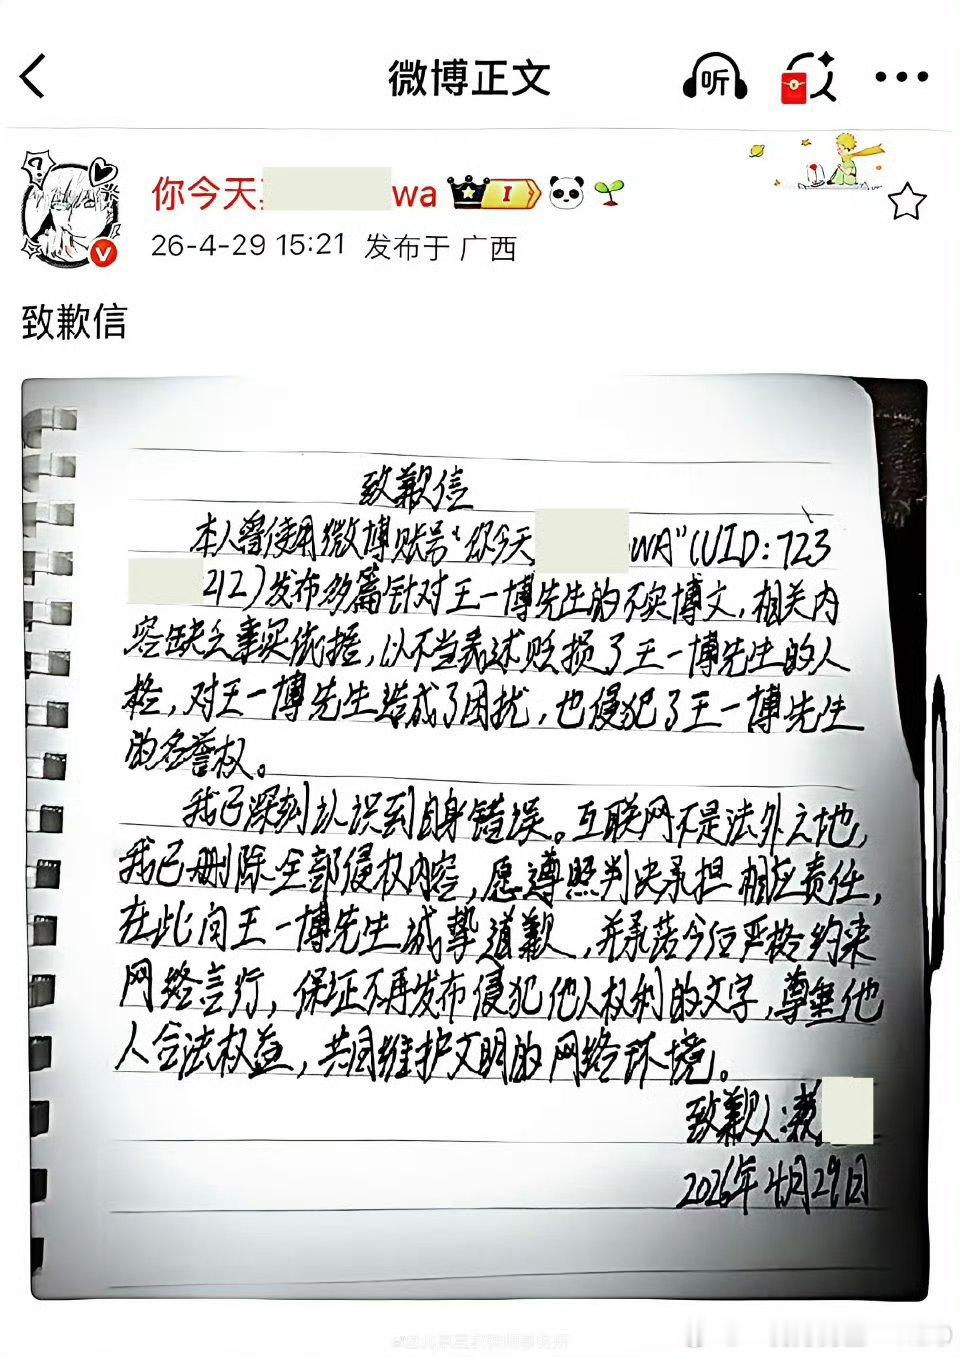 微博正文
听
你今天 wa
I
26-4-29 15:21 发布于 广西
致歉信
致歉信
本人曾使用微博账号“你今天 WA”(UID:723
212)发布多篇针对王一博先生的不实博文，相关内
容缺乏事实依据，以不当表述贬损了王一博先生的人
格，对王一博先生造成了困扰，也侵犯了王一博先生
的名誉权。
我已深刻认识到自身错误。互联网不是法外之地，
我已删除全部侵权内容，愿遵照判决承担相应责任，
在此向王一博先生诚挚道歉，并承诺今后严格约束
网络言行，保证不再发布侵犯他人权利的文字，尊重他
人合法权益，共同维护文明的网络环境。
致歉人：
2026年4月29日